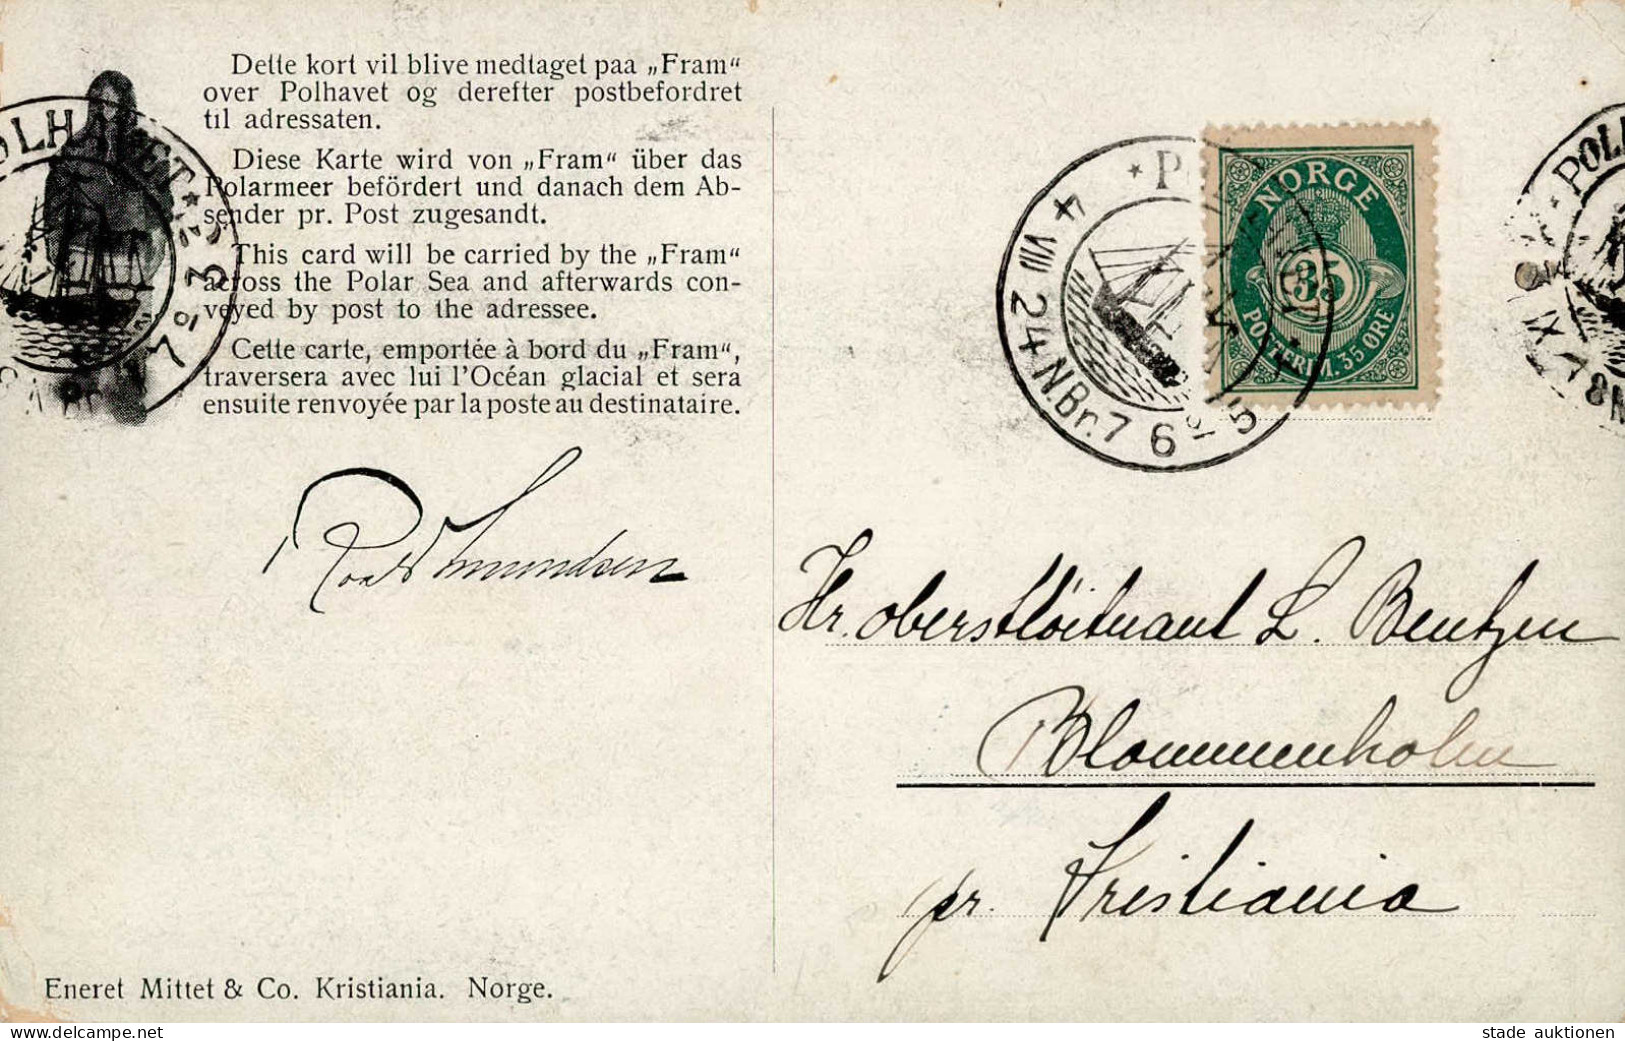 Dette kort vil blive medtaget paa „Fram“
over Polhavet og derefter postbefordret
til adressaten.
Diese Karte wird von „Fram“ über das
Polarmeer befördert und danach dem Ab-
sender pr. Post zugesandt.
This card will be carried by the „Fram“
across the Polar Sea and afterwards con-
veyed by post to the adressee.
Cette carte, emportée à bord du „Fram“,
traversera avec lui l'Océan glacial et sera
ensuite renvoyée par la poste au destinataire.
Roald Amundsen
Eneret Mittet & Co. Kristiania. Norge.
NORGE
35
POSTFRIM. 35 ØRE
4 VIII 24 N.Br. 76
Hr. oberstlöitnant L. Bentzen
Blommenholm
pr. Kristiania
stade auktionen